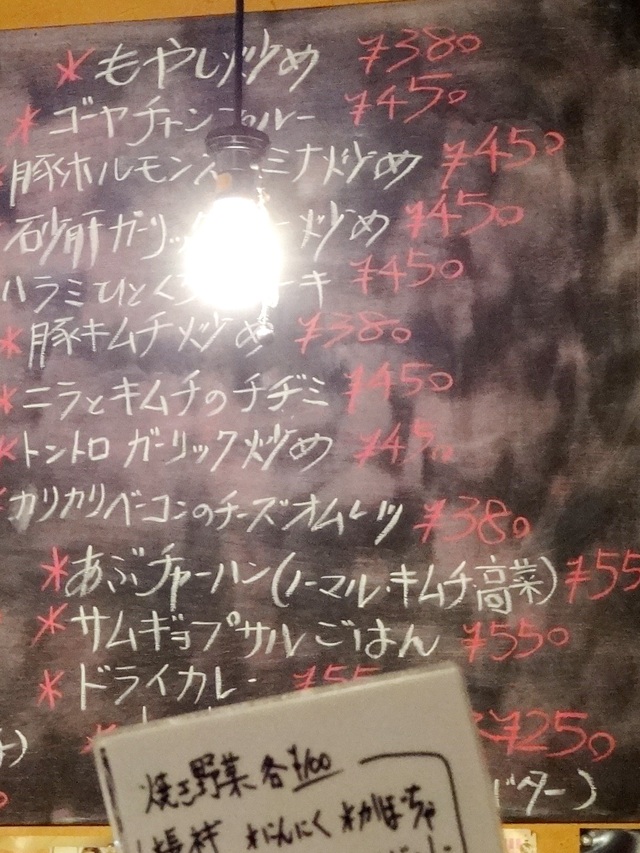 *もやし炒め ¥380
*ゴーヤチャンプルー ¥450
*豚ホルモンスミナ炒め ¥450
砂肝ガーリック 炒め ¥450
ハラミひとくち ーキ ¥450
*豚キムチ炒め ¥380
*ニラとキムチのチヂミ ¥450
*トントロガーリック炒め ¥450
カリカリベーコンのチーズオムレツ ¥380
*あぶチャーハン(ノーマル・キムチ高菜) ¥55
*サムギョプサルごはん ¥550
*ドライカレー ¥55
¥250
バター)
焼き野菜 各¥100
*にんにく *かぼちゃ